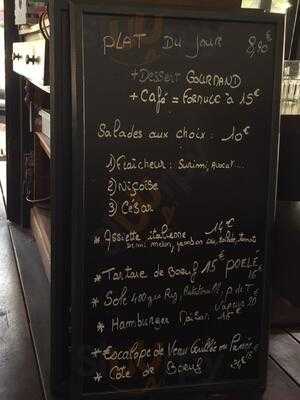 PLAT DU JOUR 8,90€
+ Dessert GOURMAND
+ Café = FORMULE à 15€
Salades aux choix : 10€
1) Fraîcheur : Surimi, Avocat...
2) Niçoise
3) César
* Assiette italienne 14€
demi melon, jambon cru, salade, tomate
* Tartare de Boeuf 15€ POELE
* Sole 400gr
* Hamburger Maison 15€
* Escalope de Veau
* Côte de Boeuf